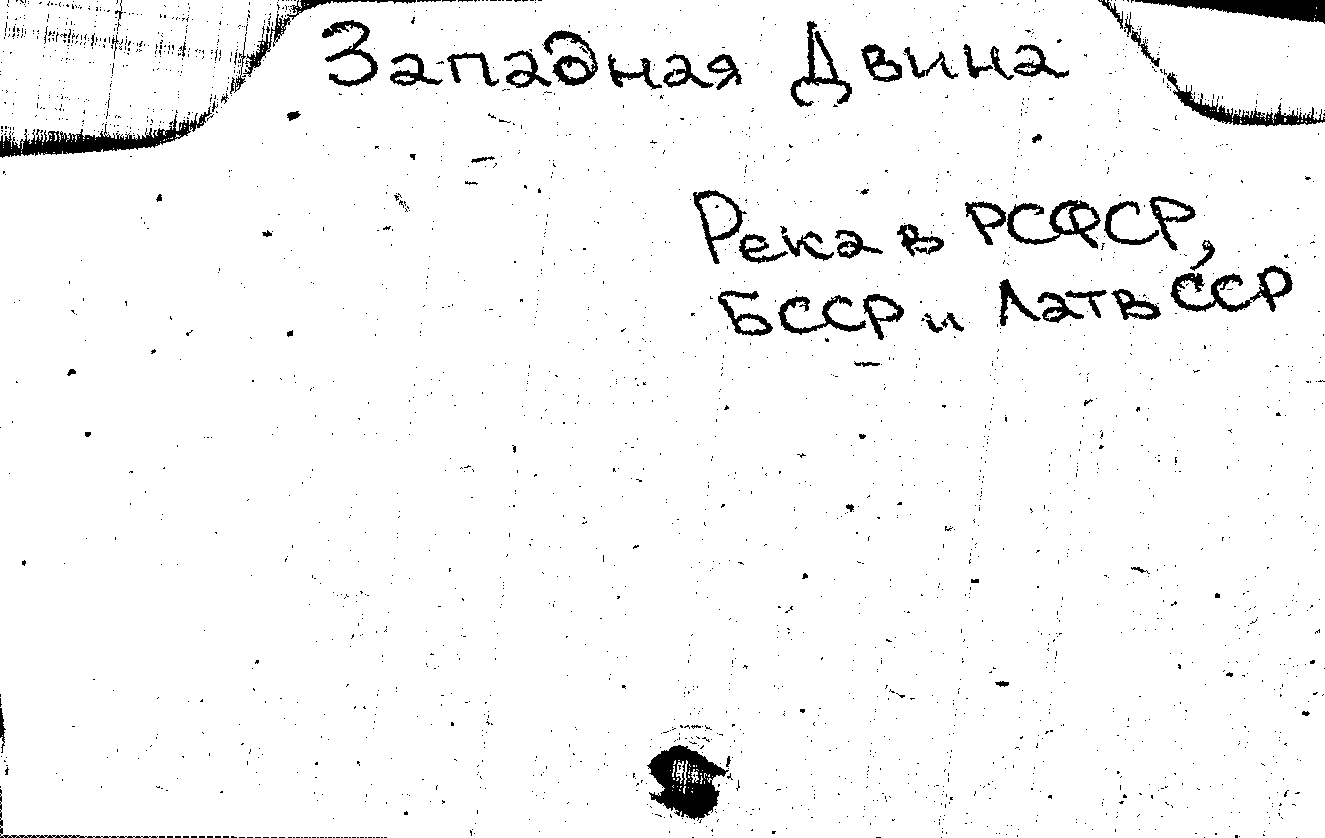 Западная Двина
Река в РСФСР,
БССР и Латв ССР